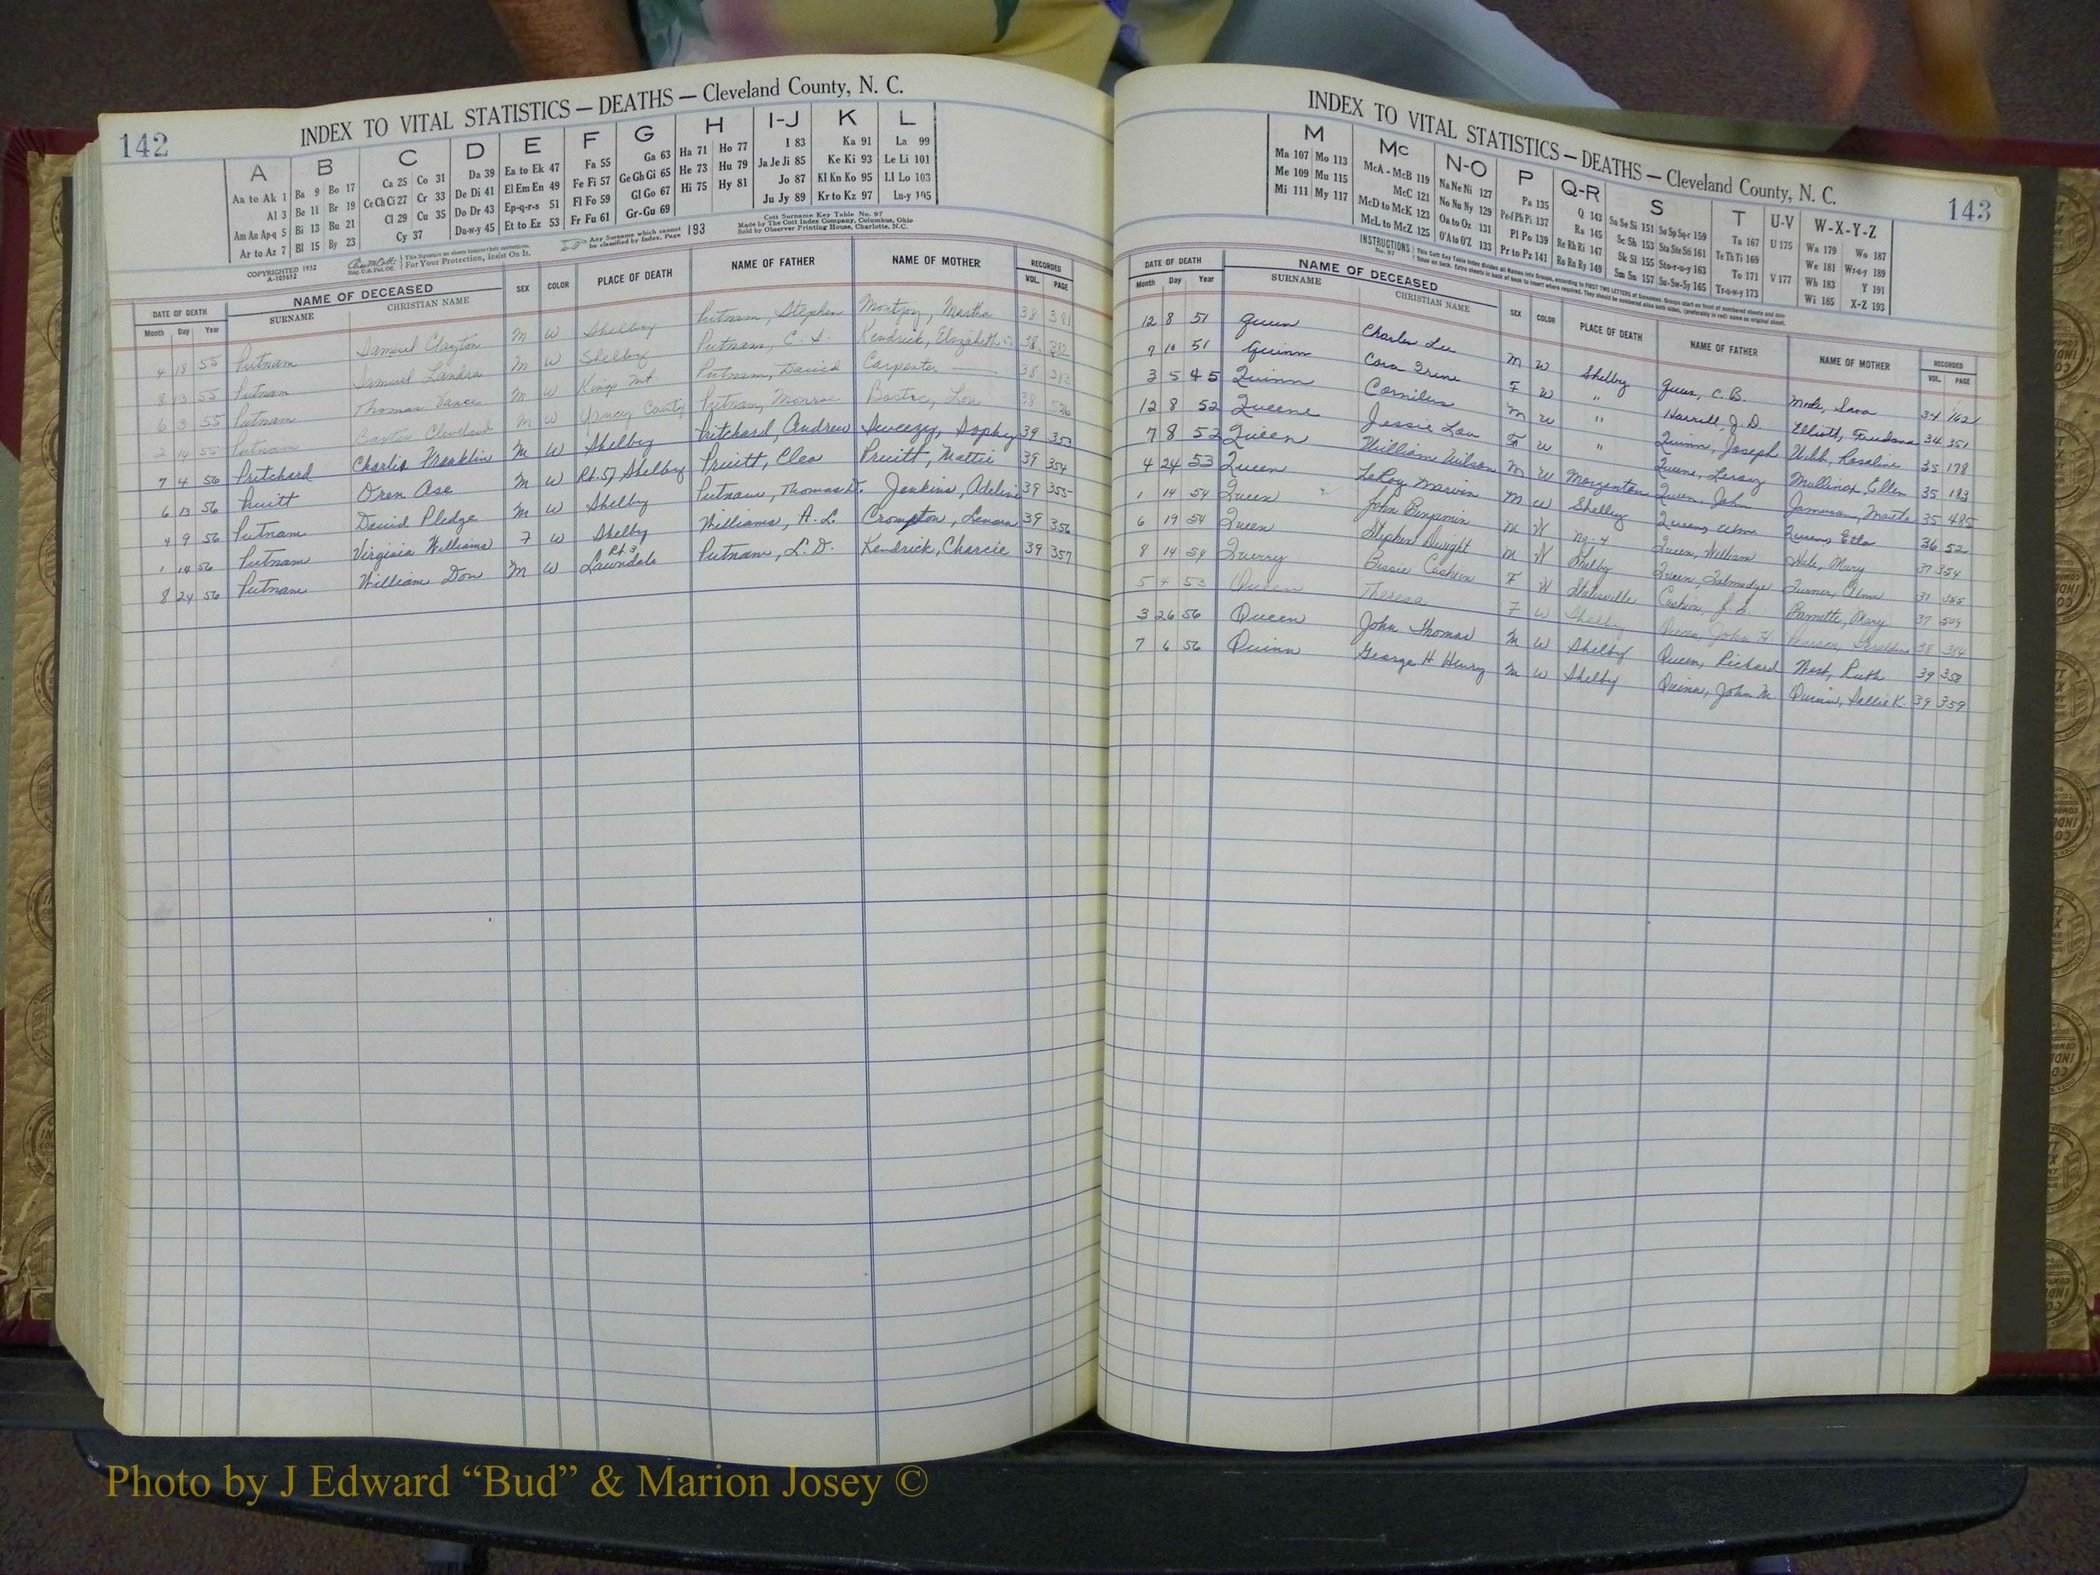 142
INDEX TO VITAL STATISTICS — DEATHS — Cleveland County, N. C.
A B C D E F G H I-J K L
Aa to Ak 1 Ba 9 Bo 17 Ca 25 Co 31 Da 39 Ea to Ek 47 Fa 55 Ga 63 Ha 71 Ho 77 I 83 Ka 91 La 99
Al 3 Be 11 Br 19 Ce Ch Ci 27 Cr 33 De Di 41 El Em En 49 Fe Fi 57 Ge Gh Gi 65 He 73 Hu 79 Ja Je Ji 85 Ke Ki 93 Le Li 101
Am An Ap-q 5 Bi 13 Bu 21 Cl 29 Cu 35 Do Dr 43 Ep-q-r-s 51 Fl Fo 59 Gl Go 67 Hi 75 Hy 81 Jo 87 Kl Kn Ko 95 Ll Lo 103
Ar to Az 7 Bl 15 By 23 Cy 37 Du-w-y 45 Et to Ez 53 Fr Fu 61 Gr-Gu 69 Ju Jy 89 Kr to Kz 97 Lu-y 105
COPYRIGHTED 1952
A-105652
Reg. U.S. Pat. Off.
For Your Protection, Insist On It.
Any Surname which cannot be classified by Index, Page 193
Cott Surname Key Table No. 97
Made by The Cott Index Company, Columbus, Ohio
Sold by Observer Printing House, Charlotte, N.C.
DATE OF DEATH NAME OF DECEASED SEX COLOR PLACE OF DEATH NAME OF FATHER NAME OF MOTHER RECORDED
Month Day Year SURNAME CHRISTIAN NAME VOL. PAGE
4 18 55 Putnam Samuel Clayton M W Shelby Putnam, Stephen Montjoy, Martha 38 381
8 13 55 Putnam Samuel Landra M W Shelby Putnam, C. S. Kendrick, Elizabeth 38 382
6 3 55 Putnam Thomas Vance M W Kings Mt Putnam, David Carpenter — 38 383
2 14 55 Putnam Baxter Cleveland M W County Putnam, Monroe Lou 38 526
7 4 56 Pritchard Charlie Franklin M W Shelby Pritchard, Andrew Sweezy, Sophy 39 353
6 13 56 Pruitt Oren Ase M W Rt. 5, Shelby Pruitt, Cleo Pruitt, Mattie 39 354
4 9 56 Putnam David Pledge M W Shelby Putnam, Thomas D. Jenkins, Adeline 39 355
1 14 56 Putnam Virginia Williams F W Shelby Williams, A. L. Crompton, Lenora 39 356
8 24 56 Putnam William Don M W Rt 3 Lawndale Putnam, L. D. Kendrick, Charcie 39 357
143
INDEX TO VITAL STATISTICS — DEATHS — Cleveland County, N. C.
M Mc N-O P Q-R S T U-V W-X-Y-Z
Ma 107 Mo 113 McA - McB 119 Na Ne Ni 127 Pa 135 Q 143 Sa Se Si 151 So Sp Sq-r 159 Ta 167 U 175 Wa 179 Wo 187
Me 109 Mu 115 McC 121 No Nu Ny 129 Pe-f Ph Pi 137 Ra 145 Sc Sh 153 Sta Ste Sti 161 Te Th Ti 169 We 181 Wr-u-y 189
Mi 111 My 117 McD to McK 123 Oa to Oz 131 Pl Po 139 Re Rh Ri 147 Sk Sl 155 Sto-r-u-y 163 To 171 V 177 Wh 183 Y 191
McL to McZ 125 O'A to O'Z 133 Pr to Pz 141 Ro Ru Ry 149 Sm Sn 157 Su-Sw-Sy 165 Tr-u-w-y 173 Wi 185 X-Z 193
INSTRUCTIONS No. 97
DATE OF DEATH NAME OF DECEASED SEX COLOR PLACE OF DEATH NAME OF FATHER NAME OF MOTHER RECORDED
Month Day Year SURNAME CHRISTIAN NAME VOL. PAGE
12 8 51 Queen Charles Lee M W Shelby Queen, C. B. Mode, Sara 34 162
9 10 51 Quinn Cora Irene F W " Harrill, J. D. Elliott, 34 351
3 5 45 Quinn Cornilus M W " Quinn, Joseph Webb, Rosaline 35 178
12 8 52 Queene Jessie Lou F W Morganton Queene, Leroy Mullinax, Ellen 35 183
7 8 52 Queen William Wilson M W Shelby Queen, John Jameson, 35 485
4 24 53 Queen LeRoy Marvin M W No. 4 Queen, Queen, Etta 36 52
1 14 54 Queen John Benjamin M W Shelby Queen, William Mary 37 354
6 19 54 Queen Stephen Dwight M W Queen, Talmadge Turner, 37 355
8 14 54 Querry Bessie Cashion F W Statesville Cashion, Barnette, Mary 37 509
5 4 53 Theresa F W Shelby John H 38 384
3 26 56 Queen John Thomas M W Shelby Queen, Richard Nash, Ruth 39 358
7 6 56 Quinn George H Henry M W Shelby Quinn, John M. Quinn, Sallie K. 39 359
Photo by J Edward “Bud” & Marion Josey ©